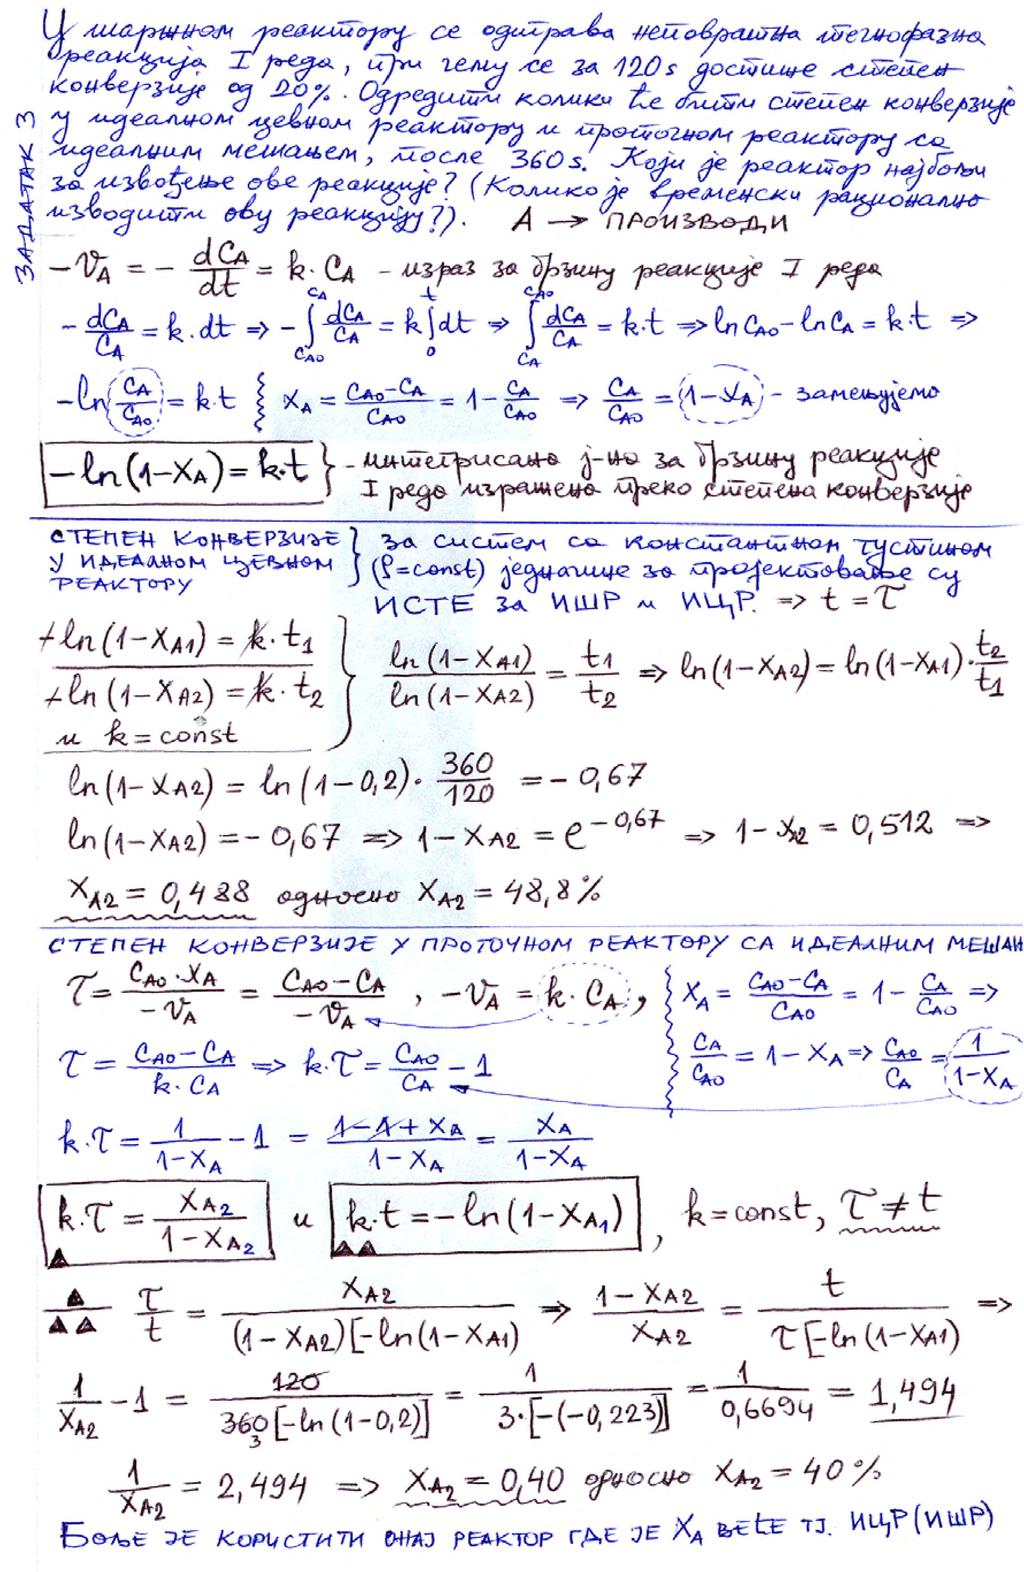 ЗАДАТАК 3
У шаржном реактору се одиграва неповратна течнофазна
реакција I реда, при чему се за 120 s достиже степен
конверзије од 20%. Одредити колики ће бити степен конверзије
у идеалном цевном реактору и проточном реактору са
идеалним мешањем, после 360 s. Који је реактор најбољи
за извођење ове реакције? (Колико је временски рационално
изводити ову реакцију?). A → ПРОИЗВОДИ
-V_A = - dC_A/dt = k · C_A - израз за брзину реакције I реда
- dC_A/C_A = k · dt ⇒ -∫_{C_A0}^{C_A} dC_A/C_A = k ∫_0^t dt ⇒ ∫_{C_A}^{C_A0} dC_A/C_A = k · t ⇒ ln C_A0 - ln C_A = k · t ⇒
-ln(C_A/C_A0) = k · t } X_A = (C_A0 - C_A)/C_A0 = 1 - C_A/C_A0 ⇒ C_A/C_A0 = (1-X_A) - замењујемо
-ln(1-X_A) = k·t } - интегрисана ј-на за брзину реакције
I реда изражена преко степена конверзије
СТЕПЕН КОНВЕРЗИЈЕ
У ИДЕАЛНОМ ЦЕВНОМ
РЕАКТОРУ
} за систем са константном густином
(ρ=const) једначине за пројектовање су
ИСТЕ за ИШР и ИЦР. ⇒ t = τ
-ln(1-X_A1) = k · t_1
-ln(1-X_A2) = k · t_2
и k = const
} ln(1-X_A1)/ln(1-X_A2) = t_1/t_2 ⇒ ln(1-X_A2) = ln(1-X_A1) · t_2/t_1
ln(1-X_A2) = ln(1-0,2) · 360/120 = -0,67
ln(1-X_A2) = -0,67 ⇒ 1-X_A2 = e^{-0,67} ⇒ 1-X_2 = 0,512 ⇒
X_A2 = 0,488 односно X_A2 = 48,8%
СТЕПЕН КОНВЕРЗИЈЕ У ПРОТОЧНОМ РЕАКТОРУ СА ИДЕАЛНИМ МЕШАН
τ = C_A0·X_A/-V_A = (C_A0-C_A)/-V_A , -V_A = k · C_A, } X_A = (C_A0-C_A)/C_A0 = 1 - C_A/C_A0 ⇒
τ = (C_A0-C_A)/(k·C_A) ⇒ k·τ = C_A0/C_A - 1 } C_A/C_A0 = 1-X_A ⇒ C_A0/C_A = 1/(1-X_A)
k·τ = 1/(1-X_A) - 1 = (1-1+X_A)/(1-X_A) = X_A/(1-X_A)
▲ k·τ = X_A2/(1-X_A2) и ▲▲ k·t = -ln(1-X_A1) , k = const, τ ≠ t
▲/▲▲ τ/t = X_A2/((1-X_A2)[-ln(1-X_A1)) ⇒ (1-X_A2)/X_A2 = t/(τ[-ln(1-X_A1)) ⇒
1/X_A2 - 1 = 120/(360 3 [-ln(1-0,2)]) = 1/(3·[-(-0,223)]) = 1/0,6694 = 1,494
1/X_A2 = 2,494 ⇒ X_A2 = 0,40 односно X_A2 = 40%
БОЉЕ ЈЕ КОРИСТИТИ ОНАЈ РЕАКТОР ГДЕ ЈЕ X_A ВЕЋЕ ТЈ. ИЦР (ИШР)